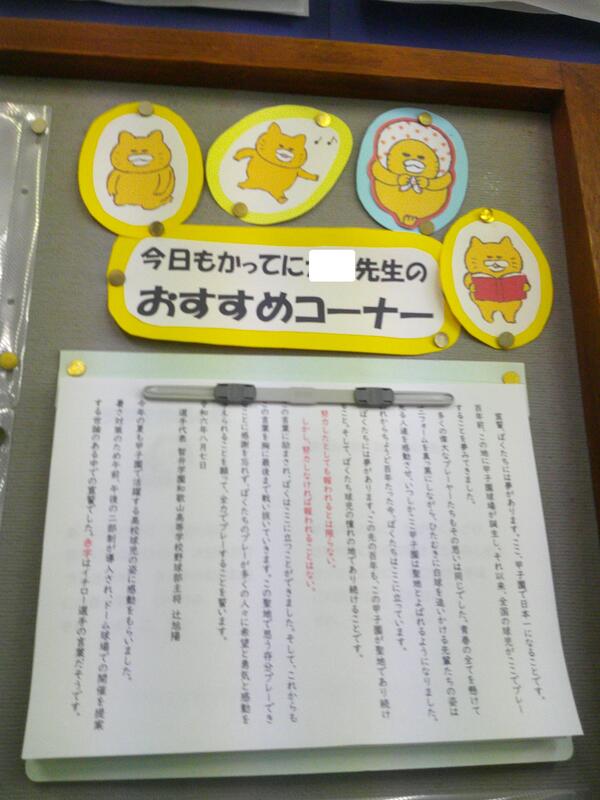 今日もかってに 先生の
おすすめコーナー
宣誓、ぼくたちには夢があります。ここ、甲子園で日本一になることです。
百年前、この地に甲子園球場が誕生し、それ以来、全国の球児がここでプレー
することを夢みてきました。
多くの偉大なプレーヤーたちもその思いは同じでした。青春の全てを懸けて
ユニフォームを真っ黒にしながら、ひたむきに白球を追いかける先輩たちの姿は
人達を感動させ、いつしかここ甲子園は聖地とよばれるようになりました。
れからちょうど百年たった今、ぼくたちはここに立っています。
ぼくたちには夢があります。この先の百年も、ここ甲子園が聖地であり続け
こと、そして、ぼくたち球児の憧れの地であり続けることです。
努力したとしても報われるとは限らない。
しかし、努力しなければ報われることはない。
の言葉に励まされ、ぼくはここに立つことができました。そして、これからも
の言葉を胸に最後まで戦い抜いていきます。この聖地で思う存分プレーでき
ことに感謝を忘れず、ぼくたちのプレーが多くの人々に希望と勇気と感動を
えられることを願って、全力でプレーすることを誓います。
令和六年八月七日
選手代表 智弁学園和歌山高等学校野球部主将 辻旭陽
今年の夏も甲子園で活躍する高校球児の姿に感動をもらいました。
暑さ対策のため午前、午後の二部制が導入され、ドーム球場での開催を提案
する世論のある中での宣誓でした。赤字はイチロー選手の言葉だそうです。